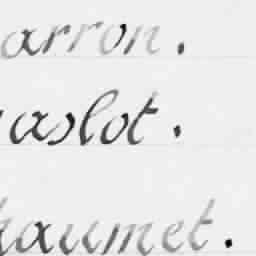 arron.
aslot.
haumet.